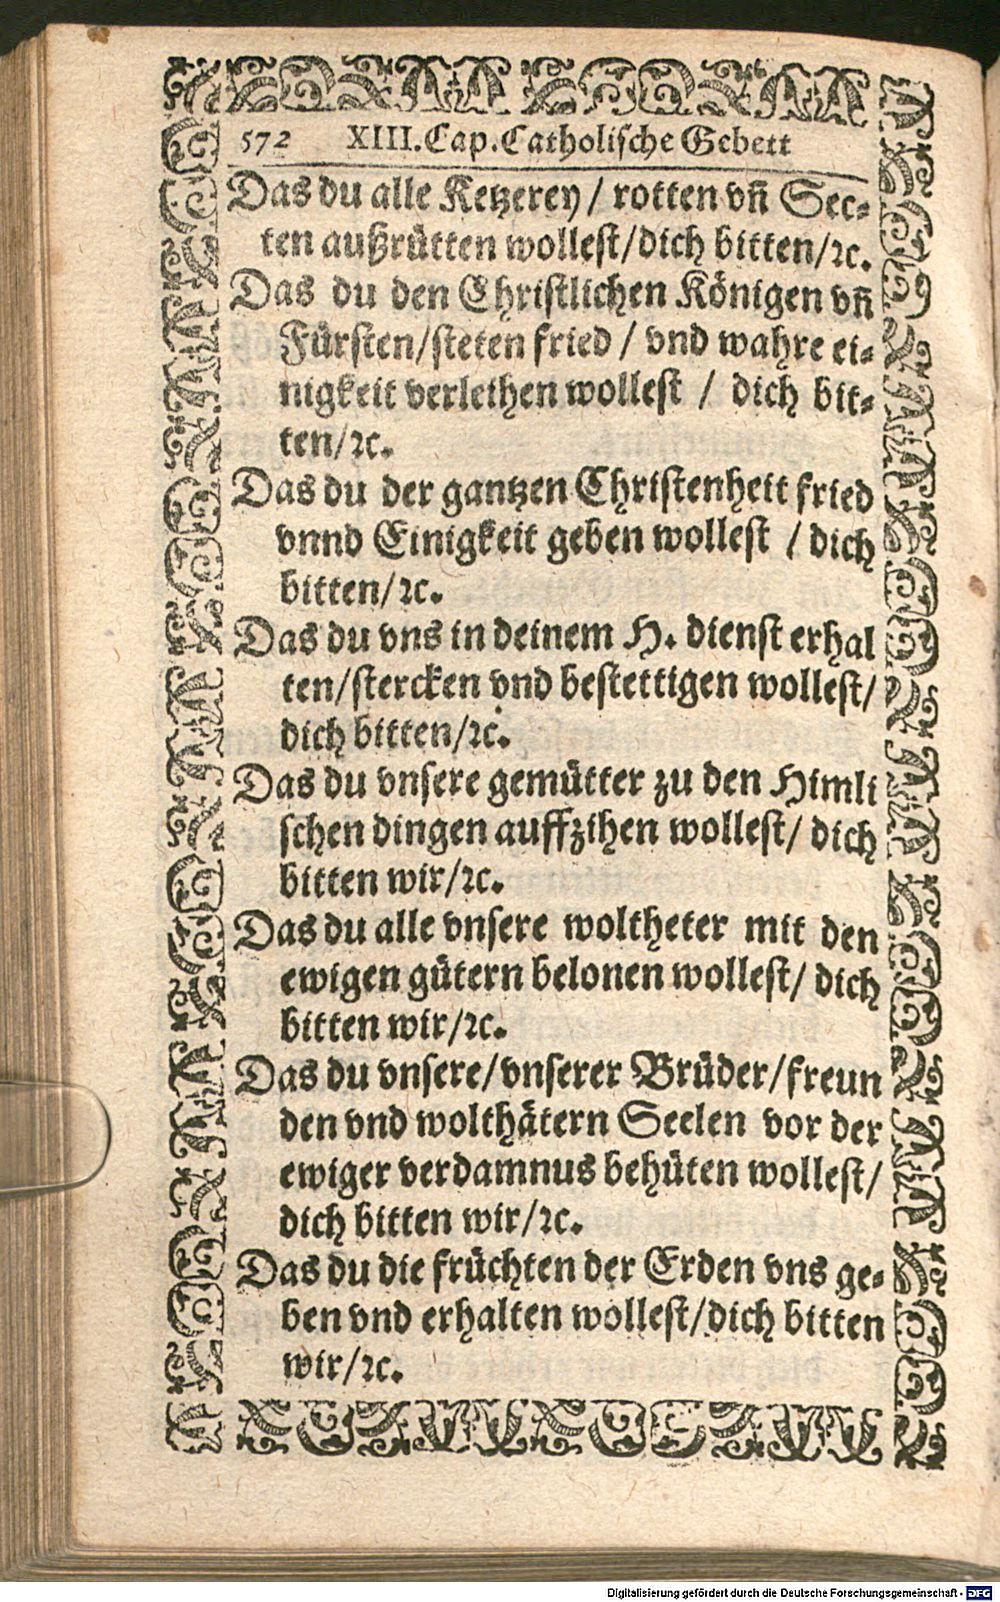 572 XIII. Cap. Catholische Gebett
Das du alle Ketzerey / rotten vñ Sec-
ten außrütten wollest/dich bitten/ꝛc.
Das du den Christlichen Königen vñ
Fürsten/steten fried / vnd wahre ei-
nigkeit verleihen wollest / dich bit-
ten/ꝛc.
Das du der gantzen Christenheit fried
vnnd Einigkeit geben wollest / dich
bitten/ꝛc.
Das du vns in deinem H. dienst erhal
ten/stercken vnd bestettigen wollest/
dich bitten/ꝛc.
Das du vnsere gemütter zu den Himli
schen dingen auffzihen wollest/ dich
bitten wir/ꝛc.
Das du alle vnsere woltheter mit den
ewigen gütern belonen wollest/ dich
bitten wir/ꝛc.
Das du vnsere/vnserer Brüder/freun
den vnd wolthätern Seelen vor der
ewiger verdamnus behüten wollest/
dich bitten wir/ꝛc.
Das du die früchten der Erden vns ge-
ben vnd erhalten wollest/dich bitten
wir/ꝛc.
Digitalisierung gefördert durch die Deutsche Forschungsgemeinschaft - DFG